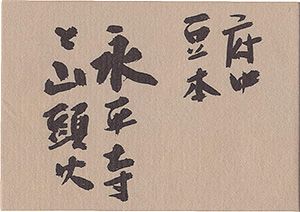 府中
豆本
永平寺
と山頭火